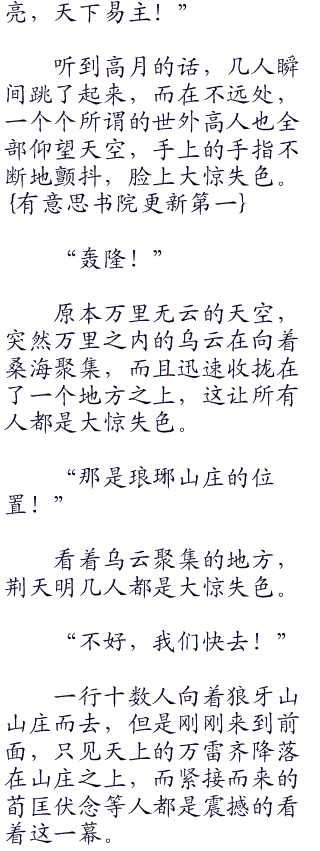 亮，天下易主！”
听到高月的话，几人瞬
间跳了起来，而在不远处，
一个个所谓的世外高人也全
部仰望天空，手上的手指不
断地颤抖，脸上大惊失色。
{有意思书院更新第一}
“轰隆！”
原本万里无云的天空，
突然万里之内的乌云在向着
桑海聚集，而且迅速收拢在
了一个地方之上，这让所有
人都是大惊失色。
“那是琅琊山庄的位
置！”
看着乌云聚集的地方，
荆天明几人都是大惊失色。
“不好，我们快去！”
一行十数人向着狼牙山
山庄而去，但是刚刚来到前
面，只见天上的万雷齐降落
在山庄之上，而紧接而来的
荀匡伏念等人都是震撼的看
着这一幕。